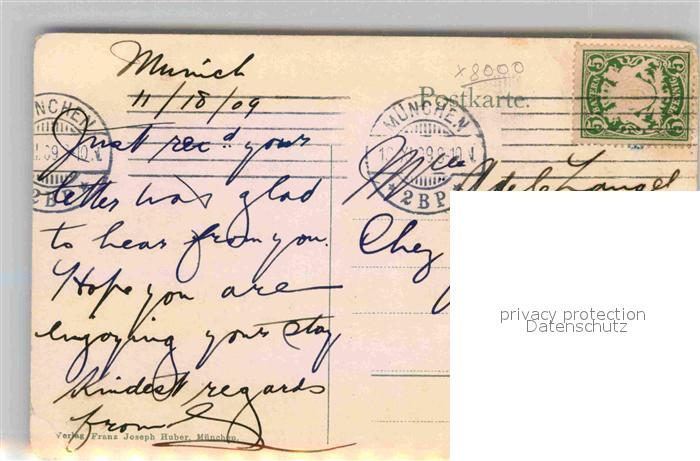 Munich
11/18/09
Just rec'd your
letter was glad
to hear from you.
Hope you are
enjoying your stay
Kindest regards
from
Verlag Franz Joseph Huber, München.
x8000
Postkarte.
5 5
BAYERN
5 5
MÜNCHEN
2 B.P.
MÜNCHEN
09.8-10.V.
* 2 B.P.
Chez
privacy protection
Datenschutz